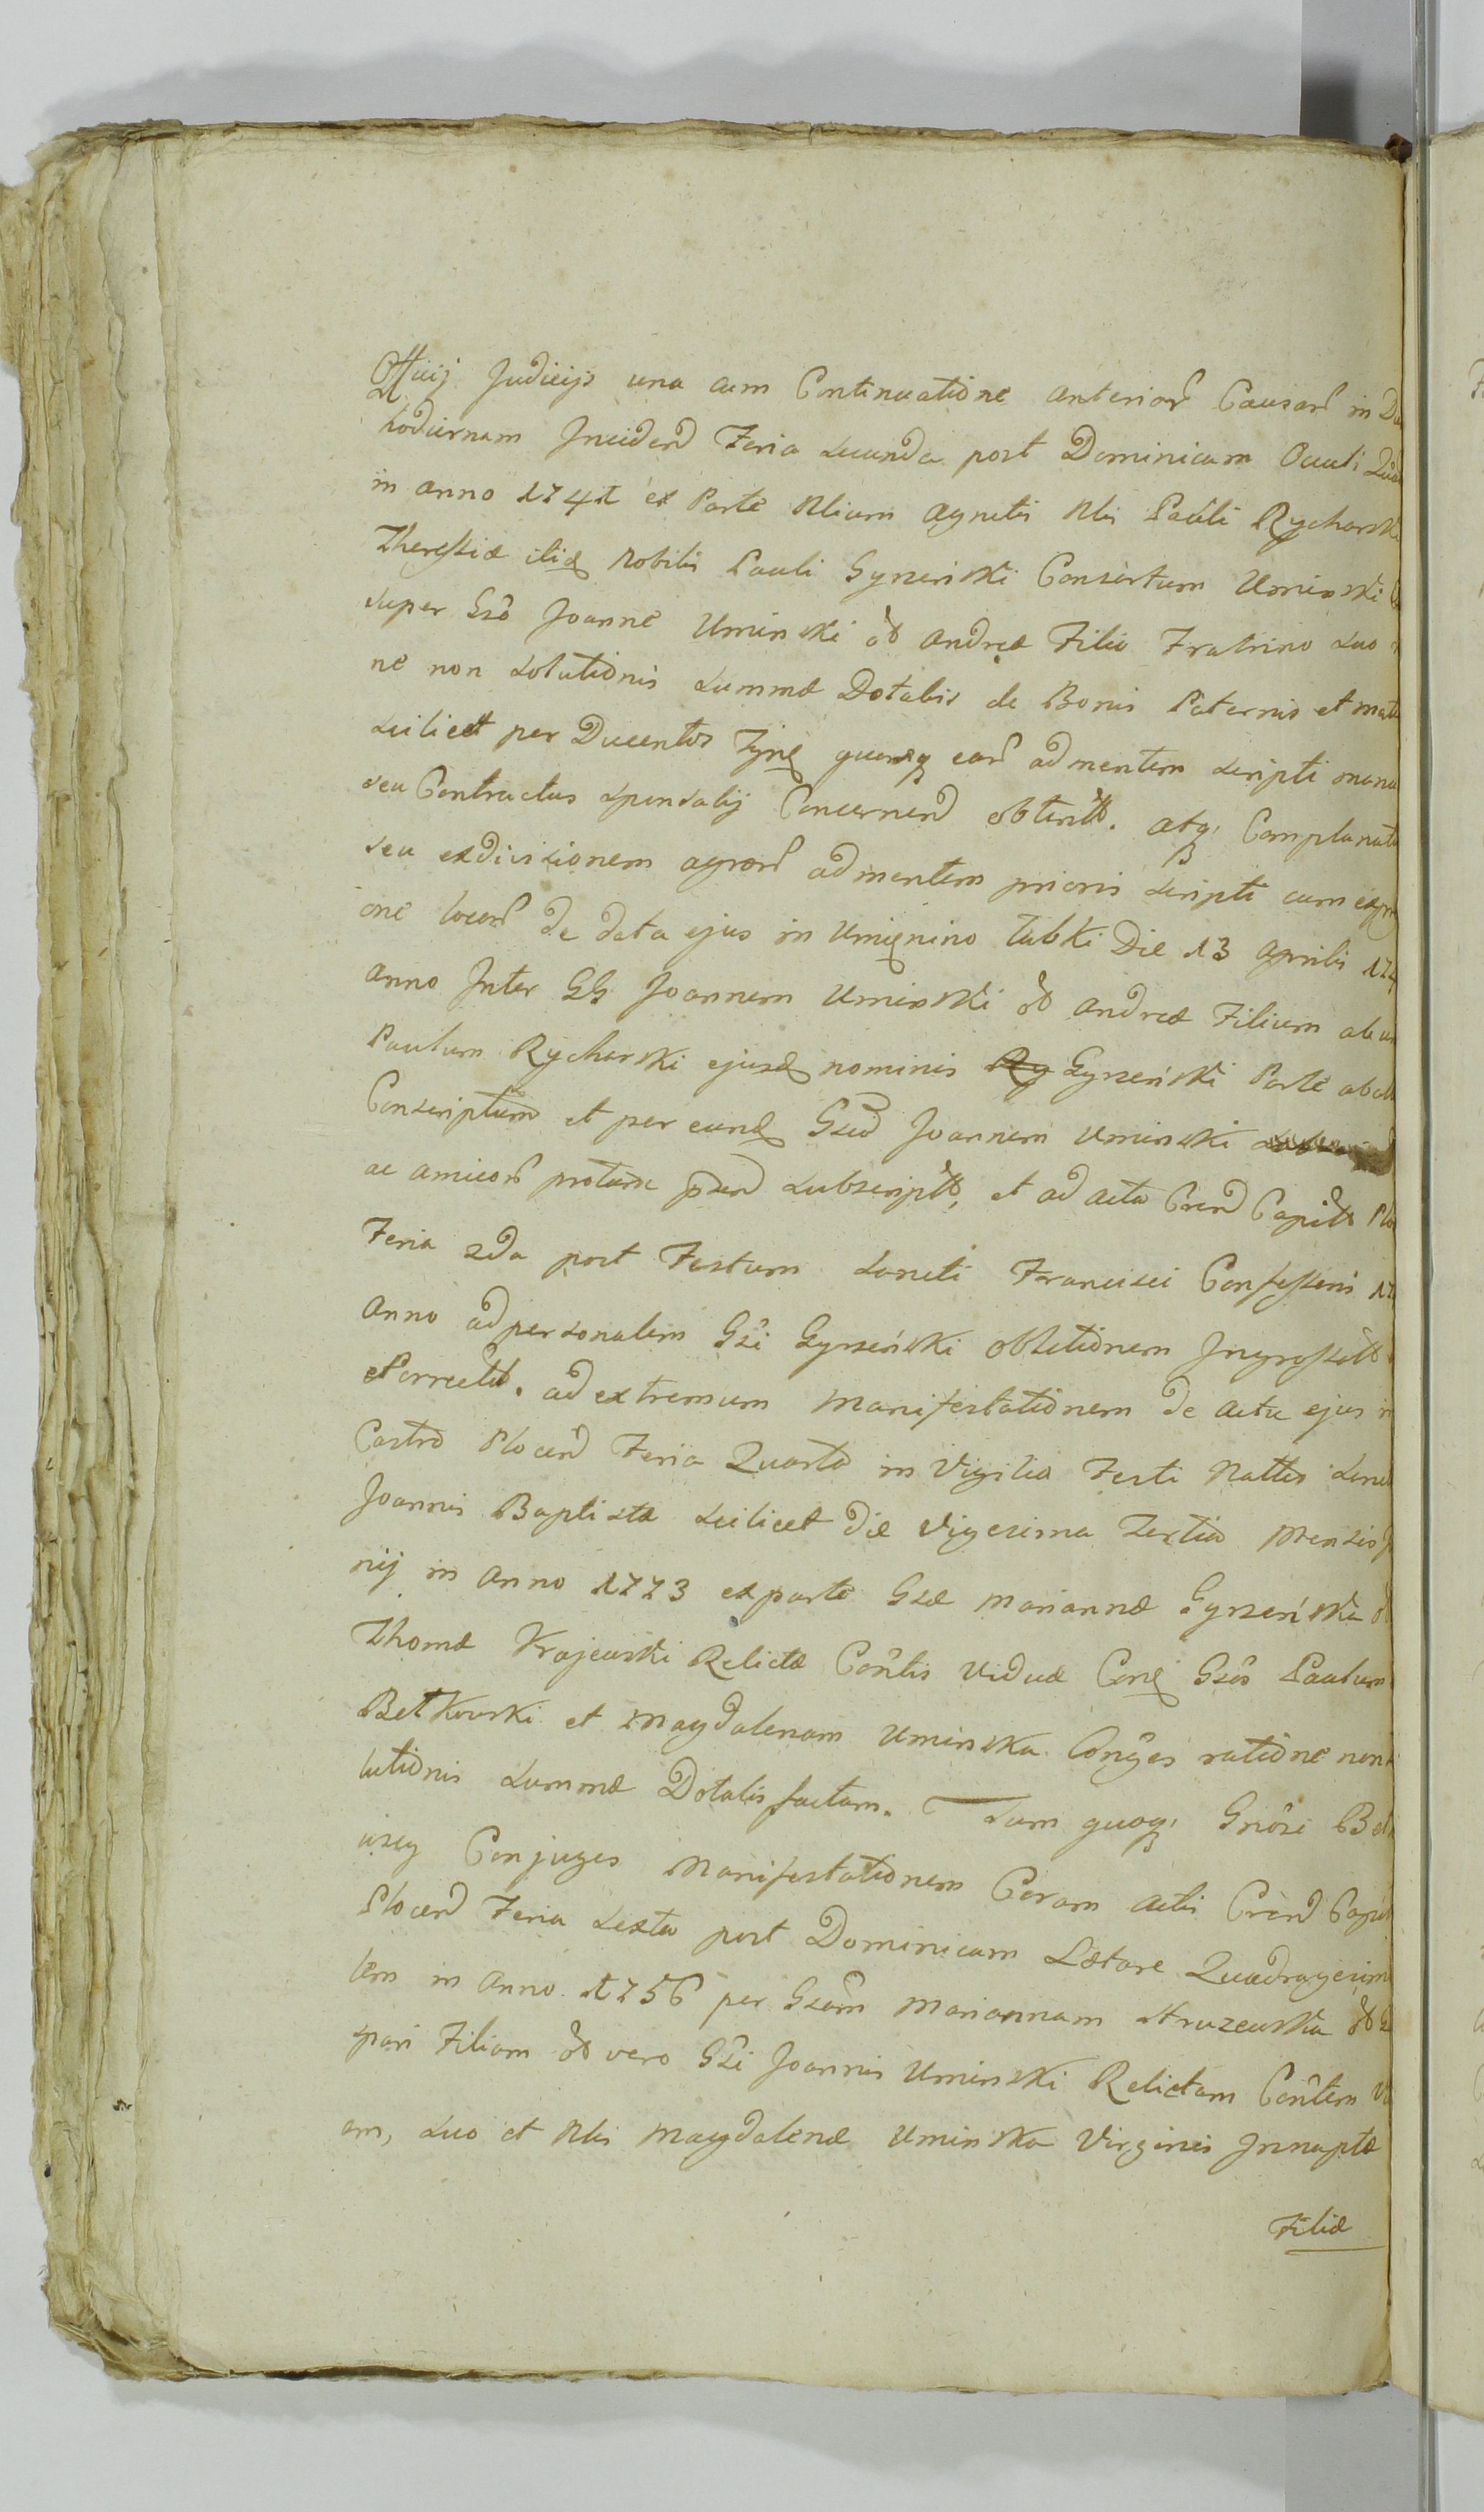 Officij Judicijs una cum Continuatione anterior Causar in
hodiernam Inciden Feria secunda post Dominicam Oculi
in anno 1741 ex Parte Nlium Agnetis Nlis Pauli Rycharski
Theressiæ itidę Nobilis Pauli Gyrzeński Consortum Uminski
super Gso Joanne Uminski ol Andreæ Filio Fratrino suo
ne non solutionis summæ Dotalis de Bonis Paternis et
scilicet per Ducentos Fyng quamq ear ad mentem scripti
seu Contractus sponsalij Concernen obtent. atq Complanat
seu exdivisionem agror ad mentem prioris scripti cum
one locor de data ejus in Umienino Łubki Die 13 Aprilis
Anno Inter GG Joannem Uminski ol Andreæ Filium ab
Paulum Rycharski ejusdę nominis Gyrzeński Parte ab
Conscriptum et per eundę Gsum Joannem Uminski
ac amicor protunc præsen subscript, et ad acta Cren Capit
Feria 2da post Festum Sancti Francisci Confessoris
Anno ad personalem Gsi Gyrzeński oblationem Ingrossat
et Porrect. ad extremum Manifestationem de actu ejus in
Castro Plocen Feria Quarta in Vigilia Festi Nattis
Joannis Baptistæ scilicet die Vigesima Tertia Mensis
nij in Anno 1773 ex parte Gsæ Mariannæ Gyrzeńska
Thomæ Krajewski Relictæ Contis Viduæ Conę Gsos Paulum
Betkowski et Magdalenam Uminska Conges ratione non
lutionis summæ Dotalis factam. Tum quoq Gnosi
Conjuges Manifestationem Coram actis Cren
Plocen Feria sexta post Dominicam Lætare
lem in Anno 1756 per Gsam Mariannam Struzewska ol
spari Filiam ol vero Gsi Joannis Uminski Relictam Contem
am, suo et Nlis Magdalenæ Uminska Virginis Innuptæ
Filiæ